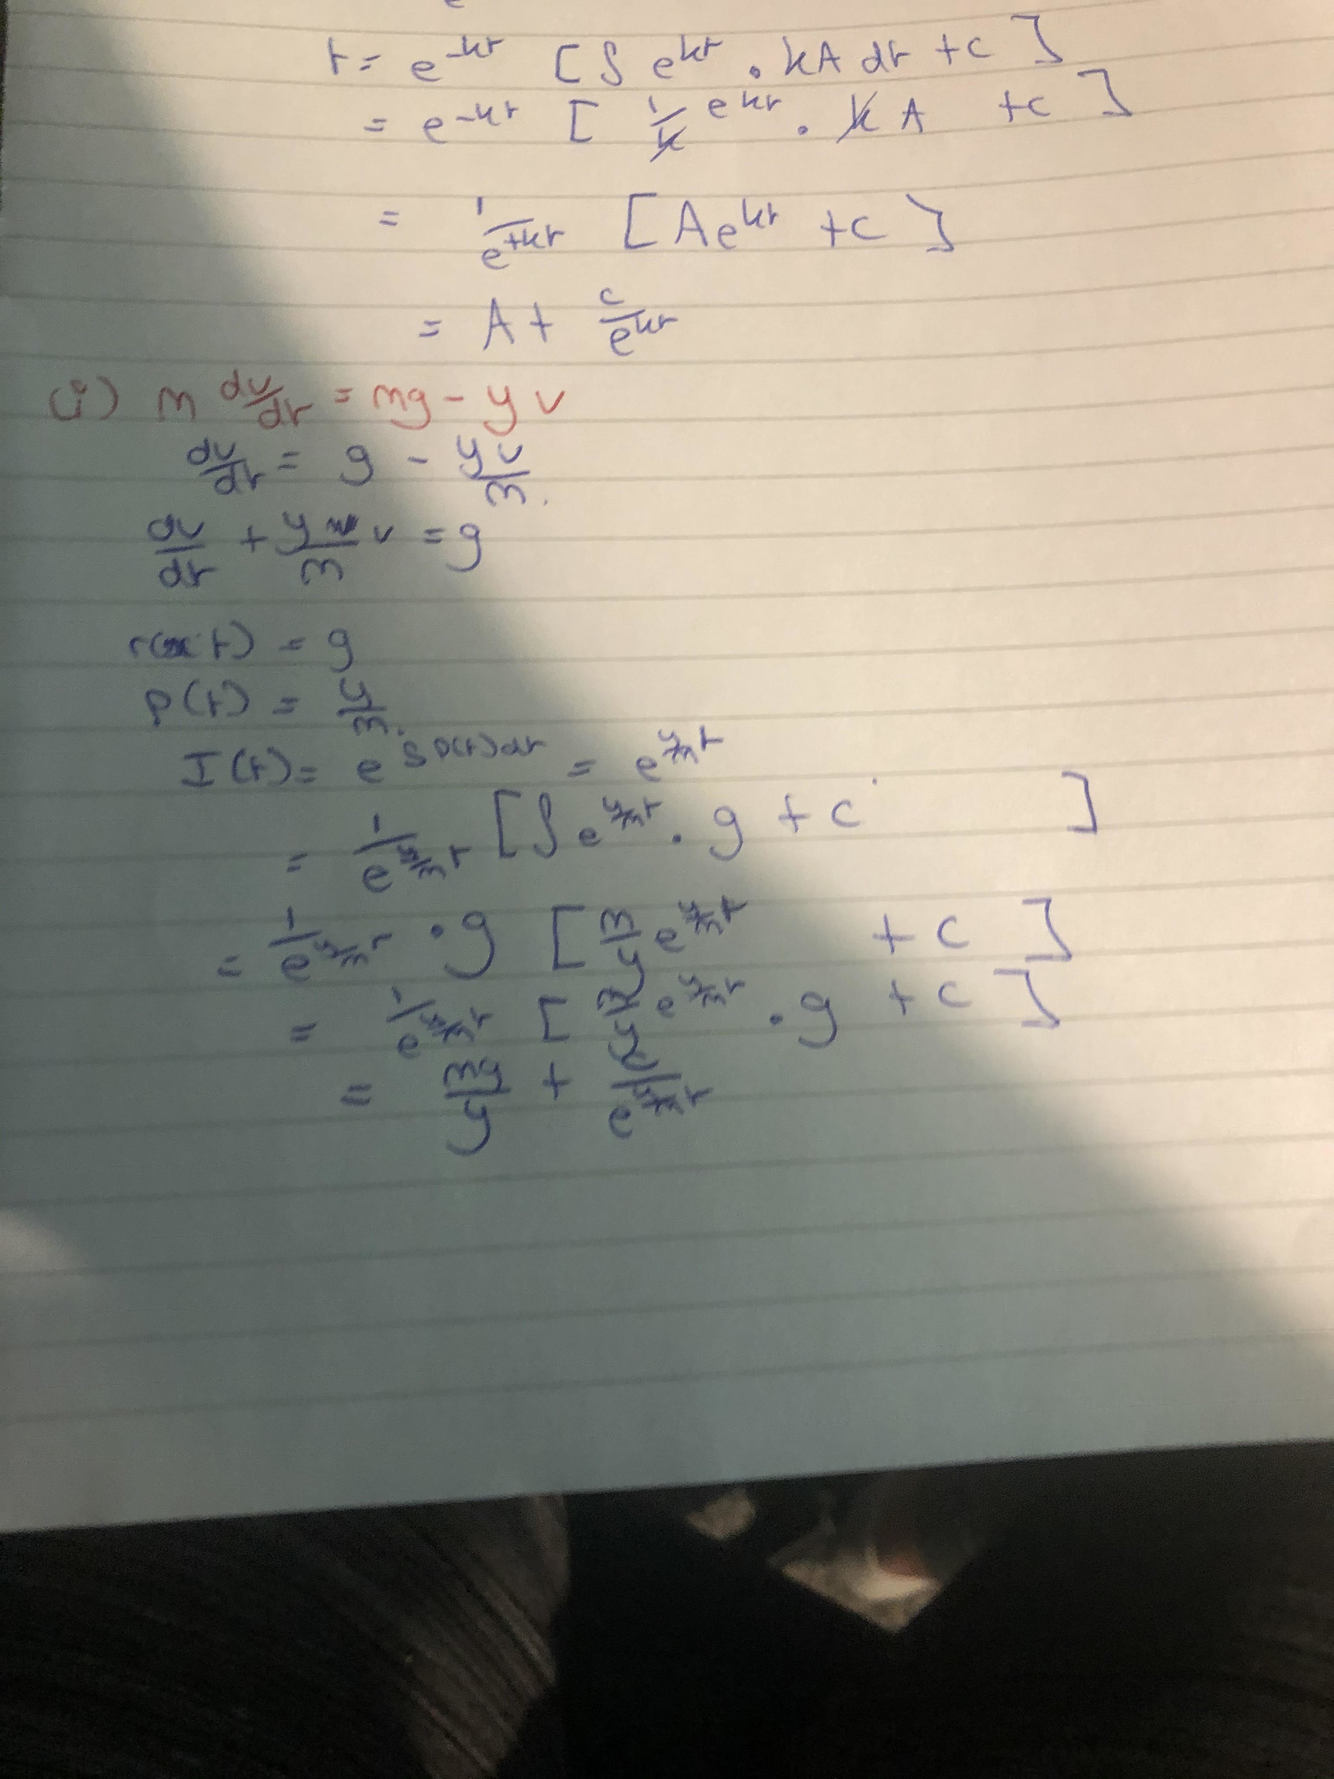 t = e^{-kt} [ ∫ e^{kt} . kA dt + c ]
= e^{-kt} [ 1/k e^{kt} . k A + c ]
= 1/e^{+kt} [ A e^{kt} + c ]
= A + c/e^{kt}
(i) m dv/dt = mg - y v
dv/dt = g - yv/m .
dv/dt + y/m v = g
r(t) = g
P(t) = y/m .
I(t) = e^{∫ P(t) dt} = e^{y/m t}
= 1/e^{y/m t} [ ∫ e^{y/m t} . g + c ]
= 1/e^{y/m t} . g [ m/y e^{y/m t} + c ]
= 1/e^{y/m t} [ m/y e^{y/m t} . g + c ]
= mg/y + c/e^{y/m t}